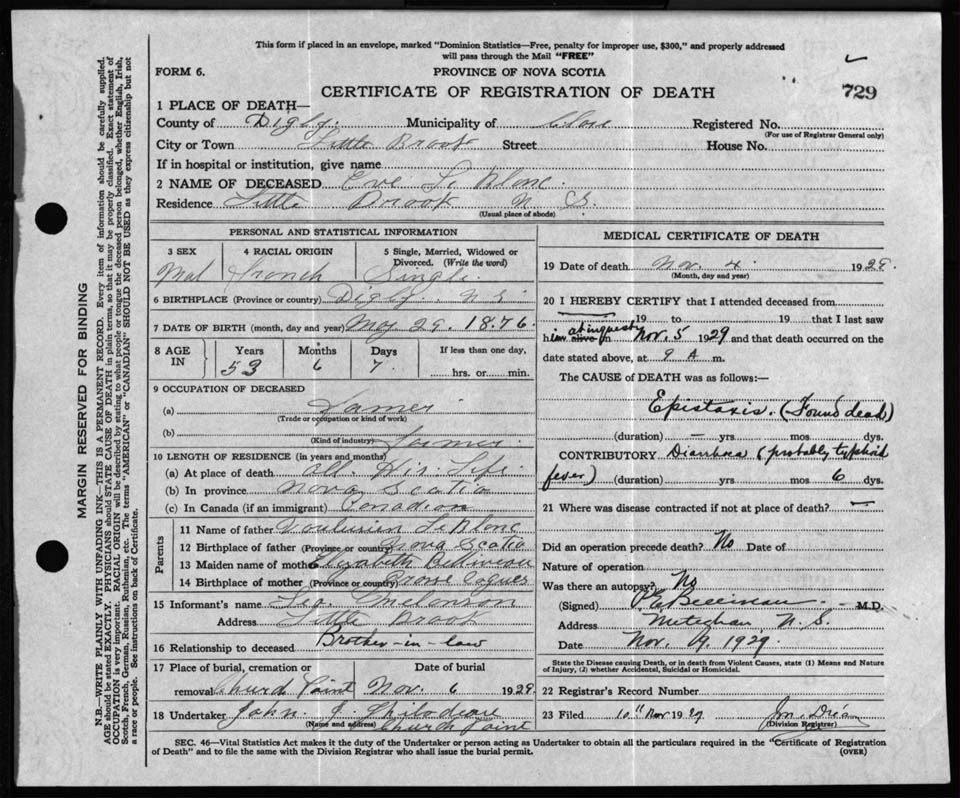 This form if placed in an envelope, marked "Dominion Statistics—Free, penalty for improper use, $300," and properly addressed
will pass through the Mail "FREE"
FORM 6.
PROVINCE OF NOVA SCOTIA
CERTIFICATE OF REGISTRATION OF DEATH
729
1 PLACE OF DEATH—
County of Digby. Municipality of Clare Registered No.
(For use of Registrar General only)
City or Town Little Brook Street House No.
If in hospital or institution, give name
2 NAME OF DECEASED Eve Le Blanc.
Residence Little Brook N. S.
(Usual place of abode)
PERSONAL AND STATISTICAL INFORMATION
3 SEX 4 RACIAL ORIGIN 5 Single, Married, Widowed or
Divorced. (Write the word)
Mal French Single.
6 BIRTHPLACE (Province or country) Digby. N. S.
7 DATE OF BIRTH (month, day and year) May 29. 1876.
8 AGE IN Years Months Days If less than one day,
53 6 7 hrs. or min.
9 OCCUPATION OF DECEASED
(a) Farmer
(Trade or occupation or kind of work)
(b) Farmer.
(Kind of industry)
10 LENGTH OF RESIDENCE (in years and months)
(a) At place of death all. His. Life.
(b) In province Nova Scotia
(c) In Canada (if an immigrant) Canadian
Parents
11 Name of father LeBlanc
12 Birthplace of father (Province or country) Nova Scotia
13 Maiden name of mother Elizabeth
14 Birthplace of mother (Province or country)
15 Informant's name Leo. Melanson
Address Little Brook
16 Relationship to deceased Brother-in-law
17 Place of burial, cremation or Date of burial
removal Church Point Nov. 6 1929.
18 Undertaker John J. Thibodeau
(Name and address) Church Point
MEDICAL CERTIFICATE OF DEATH
19 Date of death Nov. 4. 1929.
(Month, day and year)
20 I HEREBY CERTIFY that I attended deceased from
19 to 19 that I last saw
him alive on at inquest Nov. 5 1929 and that death occurred on the
date stated above, at 9 A m.
The CAUSE of DEATH was as follows:—
Epistaxis. (Found dead)
(duration) — yrs. mos. dys.
CONTRIBUTORY Diarrhoea (probably typhoid
fever) (duration) yrs. mos. 6 dys.
21 Where was disease contracted if not at place of death? —
Did an operation precede death? No Date of
Nature of operation
Was there an autopsy? No
(Signed) P. E. Belliveau M.D.
Address Meteghan, N. S.
Date Nov. 9. 1929.
State the Disease causing Death, or in death from Violent Causes, state (1) Means and Nature
of Injury, (2) whether Accidental, Suicidal or Homicidal.
22 Registrar's Record Number
23 Filed 10" Nov 1929
(Division Registrar)
SEC. 46—Vital Statistics Act makes it the duty of the Undertaker or person acting as Undertaker to obtain all the particulars required in the "Certificate of Registration
of Death" and to file the same with the Division Registrar who shall issue the burial permit. (OVER)
MARGIN RESERVED FOR BINDING
N.B.—WRITE PLAINLY WITH UNFADING INK—THIS IS A PERMANENT RECORD. Every item of information should be carefully supplied.
AGE should be stated EXACTLY. PHYSICIANS should STATE CAUSE OF DEATH in plain terms, so that it may be properly classified. Exact statement of
OCCUPATION is very important. RACIAL ORIGIN will be described by stating to what people or tongue the deceased person belonged, whether English, Irish,
Scotch, French, German, Russian, Ruthenian, etc. The terms "AMERICAN" or "CANADIAN" SHOULD NOT BE USED as they express citizenship but not
a race or people. See instructions on back of Certificate.